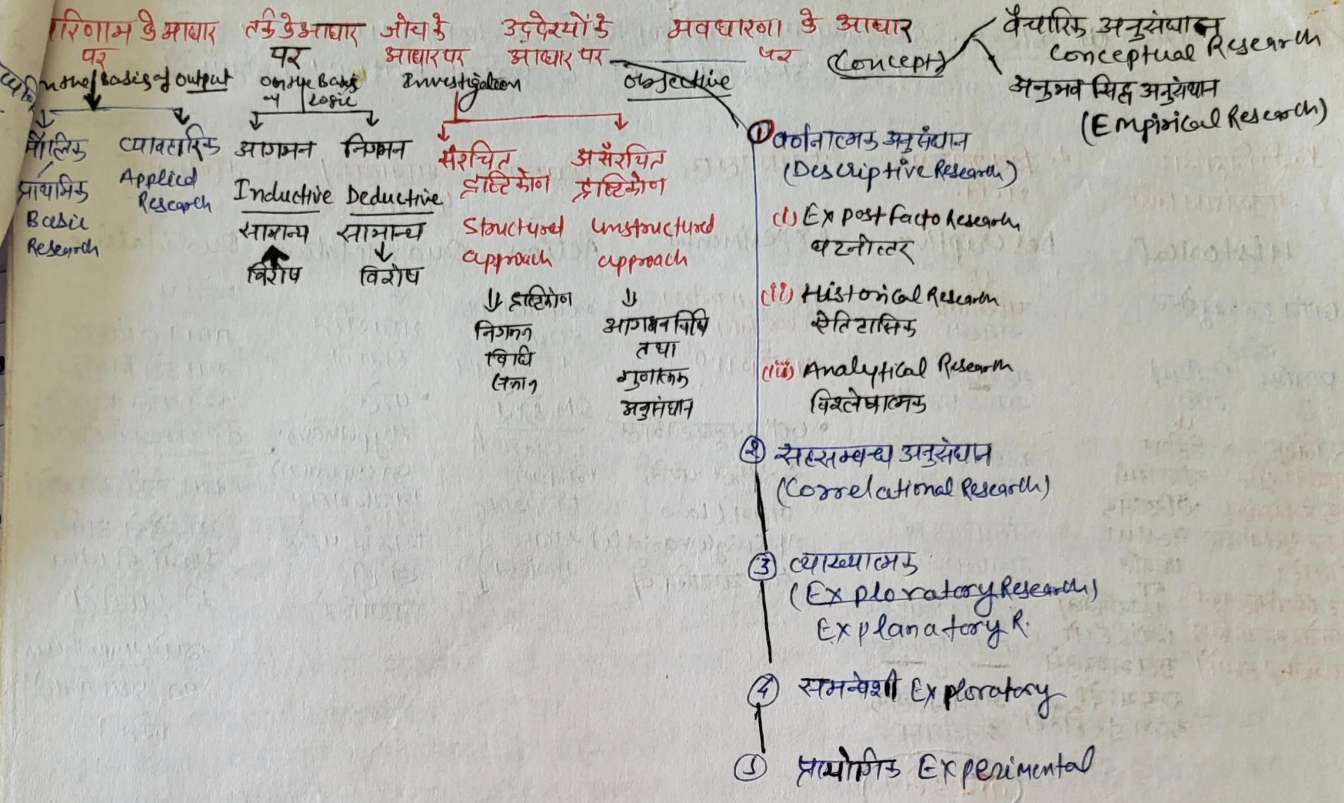 परिणाम के आधार
पर
on the Basis of output
मौलिक
प्राथमिक
Basic
Research
व्यावहारिक
Applied
Research
तर्क के आधार
पर
on the Basis
of Logic
आगमन
Inductive
सामान्य
विशेष
निगमन
Deductive
सामान्य
विशेष
जाँच के
आधार पर
Investigation
संरचित
दृष्टिकोन
Structured
approach
दृष्टिकोन
निगमन
विधि
असंरचित
दृष्टिकोन
unstructured
approach
आगमन विधि
तथा
गुणात्मक
अनुसंधान
उद्देश्यों के
आधार पर
objective
① वर्णनात्मक अनुसंधान
(Descriptive Research)
(i) Ex post facto Research
घटनोत्तर
(ii) Historical Research
ऐतिहासिक
(iii) Analytical Research
विश्लेषात्मक
② सहसम्बन्ध अनुसंधान
(Correlational Research)
③ व्याख्यात्मक
(Exploratory Research)
Explanatory R.
④ समन्वेशी Exploratory
⑤ प्रायोगिक Experimental
अवधारना के आधार
पर (Concept)
वैचारिक अनुसंधान
Conceptual Research
अनुभव सिद्ध अनुसंधान
(Empirical Research)